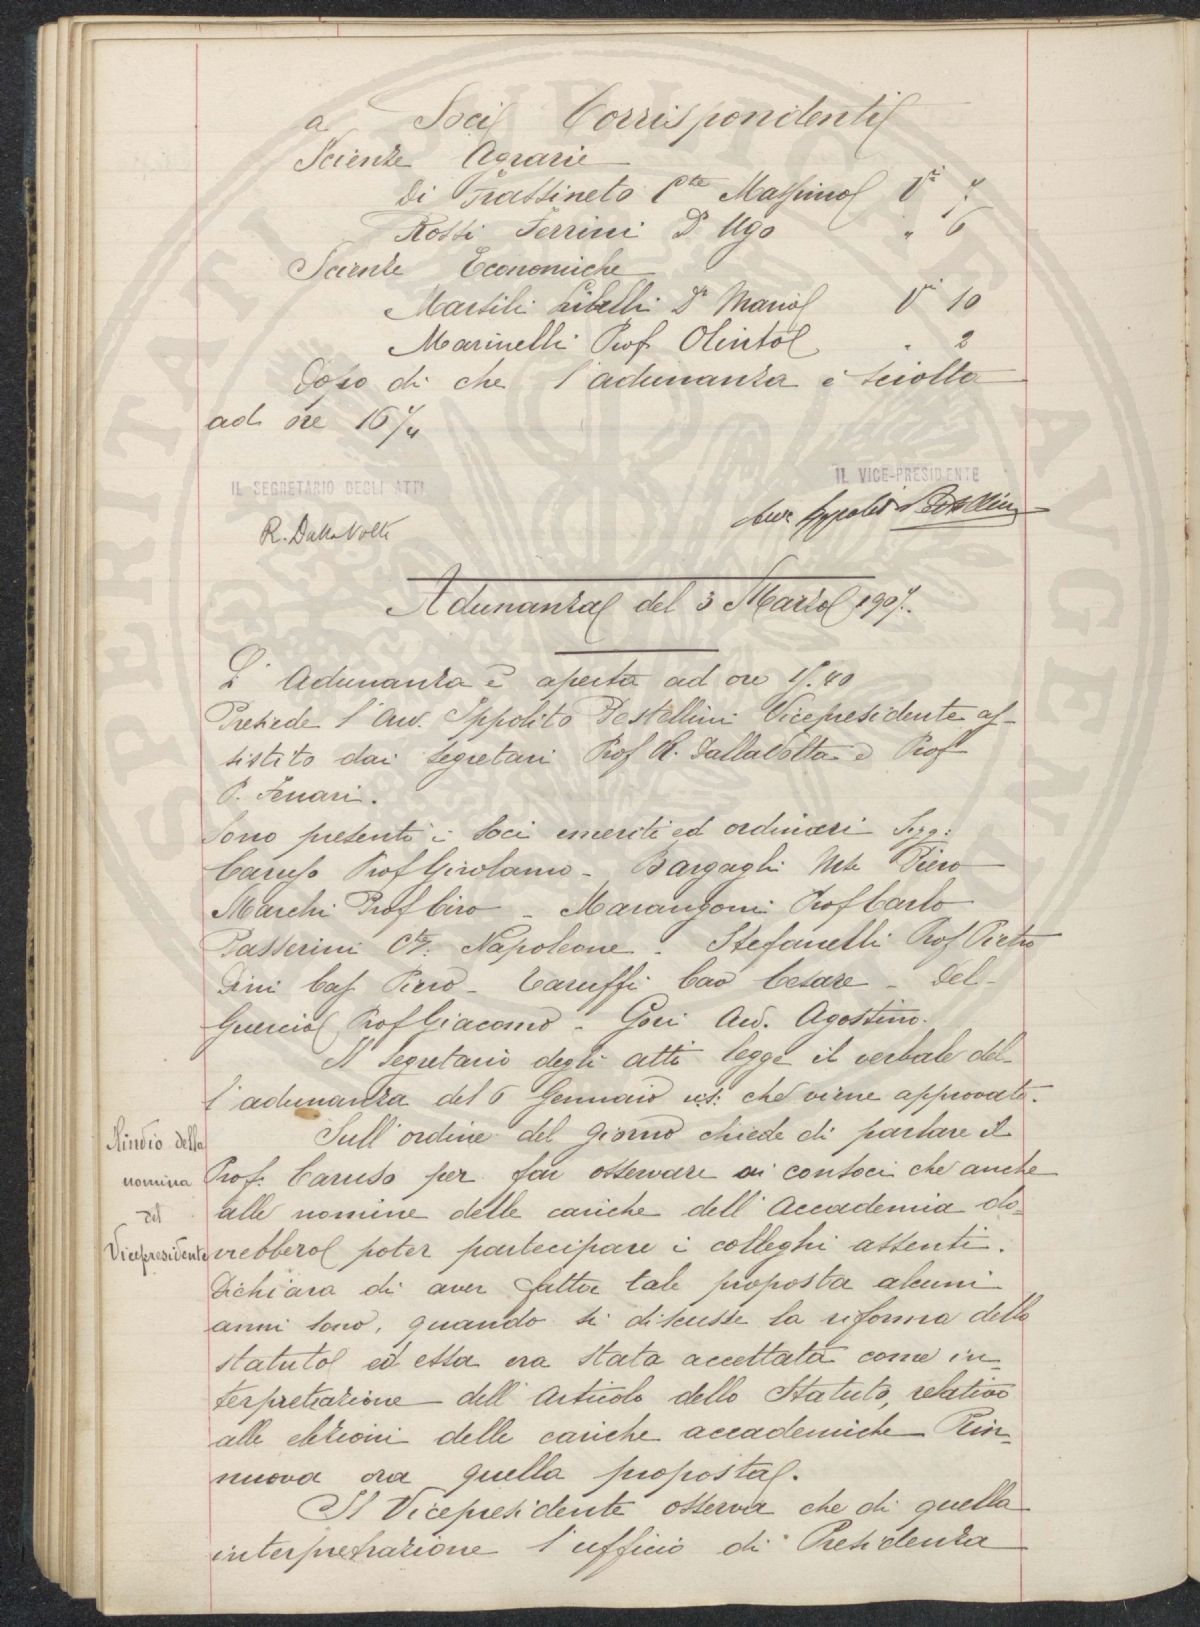 a Soci Corrispondenti
Scienze Agrarie
Di Frassineto Cte Massimo Vi 7
Rossi Ferrini Dr Ugo " 6
Scienze Economiche
Marsili Libelli Dr Mario Vi 10
Marinelli Prof. Olinto " 2
Dopo di che l'adunanza è sciolta
ad ore 16 1/4
IL SEGRETARIO DEGLI ATTI
IL VICE-PRESIDENTE
R. Dalla Volta
Avv. Ippolito Pestellini
Adunanza del 3 Marzo 1907.
L'Adunanza è aperta ad ore 15.40
Presiede l'Avv. Ippolito Pestellini Vicepresidente as-
sistito dai segretari Prof. R. Dalla Volta e Prof.
P. Ferrari.
Sono presenti i Soci emeriti ed ordinari Sigg:
Caruso Prof Girolamo - Bargagli Mse Piero
Marchi Prof Ciro - Marangoni Prof Carlo
Passerini Cte: Napoleone - Stefanelli Prof. Pietro
Dini Cap. Piero - Taruffi Cav Cesare - Del-
Guercio Prof Giacomo - Gori Avv. Agostino.
Il Segretario degli atti legge il verbale del-
l'adunanza del 6 Gennaio u.s: che viene approvato.
Rinvio della
nomina
del
Vicepresidente
Sull'ordine del giorno chiede di parlare il
Prof. Caruso per far osservare ai consoci che anche
alle nomine delle cariche dell'Accademia do-
vrebbero poter partecipare i colleghi assenti.
Dichiara di aver fatta tale proposta alcuni
anni sono, quando si discusse la riforma dello
statuto ed essa era stata accettata come in-
terpretazione dell'Articolo dello Statuto, relativo
alle elezioni delle cariche accademiche Rin-
nuova ora quella proposta.
Il Vicepresidente osserva che di quella
interpretazione l'ufficio di Presidenza